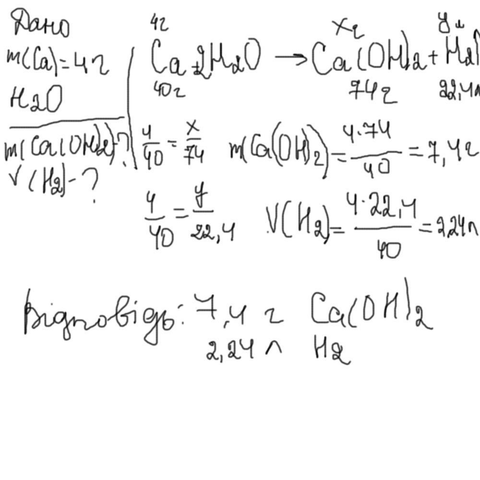 Дано
m(Ca)=4г
H2O
m(Ca(OH)2)-?
V(H2)-?
4г xг y л
Ca+2H2O → Ca(OH)2+H2↑
40г 74г 22,4л
4/40=x/74 m(Ca(OH)2)=4·74/40=7,4г
4/40=y/22,4 V(H2)=4·22,4/40=2,24л
Відповідь: 7,4 г Ca(OH)2
2,24 л H2